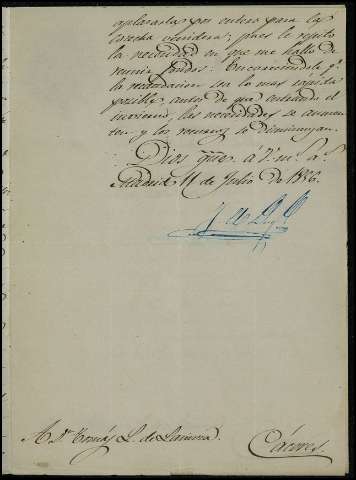 aplazarlas por entero para la
cosecha venidera; pues le repito
la necesidad en que me hallo de
reunir fondos. Encareciendole q.e
la realizacion sea lo mas rapida
posible, antes de que entrando el
invierno, las necesidades se aumen-
ten y los recursos se disminuyan.
Dios gue. á V. m.s a.s
Madrid 11 de Julio de 1856.
A D.n Tomás L. de Lamora.
Cáceres.